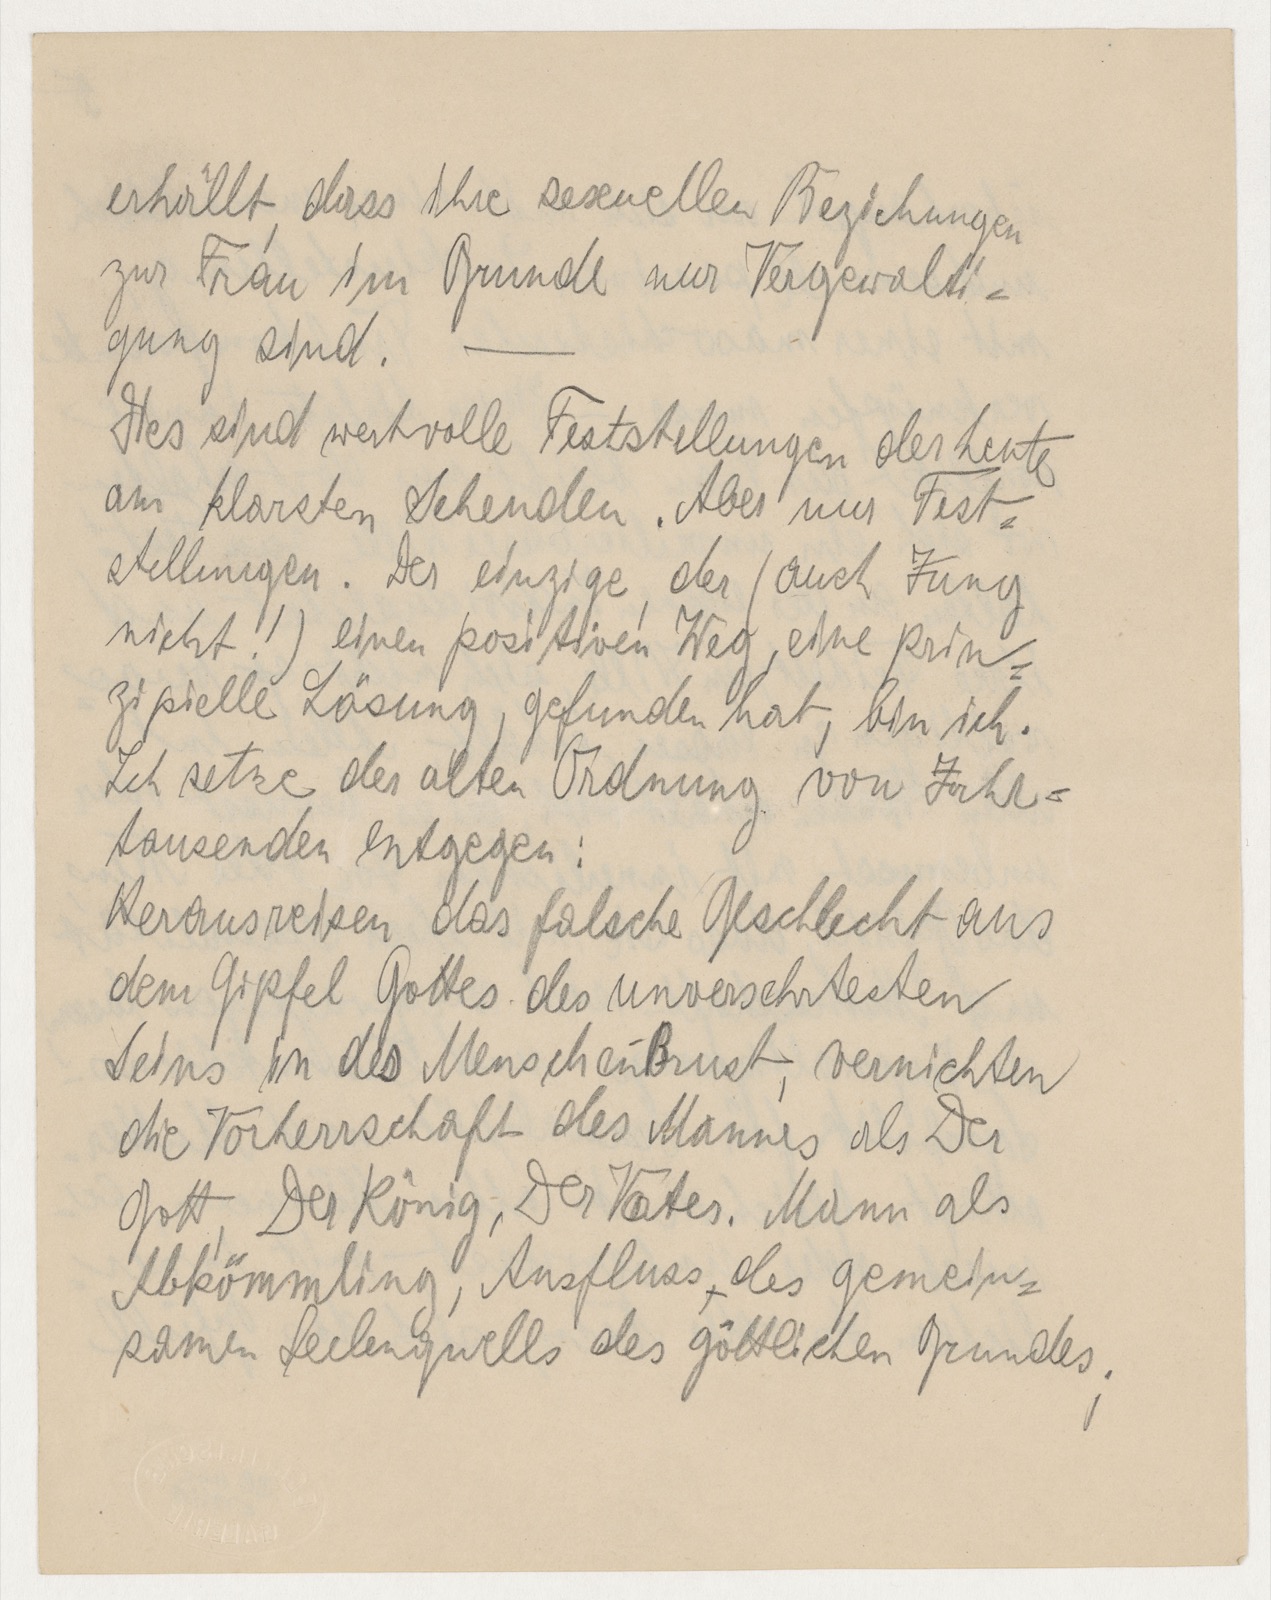 erhällt, dass ihre sexuellen Beziehungen
zur Frau im Grunde nur Vergewalti=
gung sind. —
Des sind wertvolle Feststellungen der heute
am klarsten Sehenden. Aber nur Fest=
stellungen. Der einzige, der (auch Jung
nicht!) einen positiven Weg, eine prin=
zipielle Lösung, gefunden hat, bin ich.
Ich setze der alten Ordnung von Jahr=
tausenden entgegen:
Herausreisen das falsche Geschlecht aus
dem Gipfel Gottes des unversehrtesten
Seins in des Menschen Brust, vernichten
die Vorherrschaft des Mannes als Der
Gott, Der König, Der Vater. Mann als
Abkömmling, Ausfluss, des gemein=
samen Seelenquells des göttlichen Grundes;